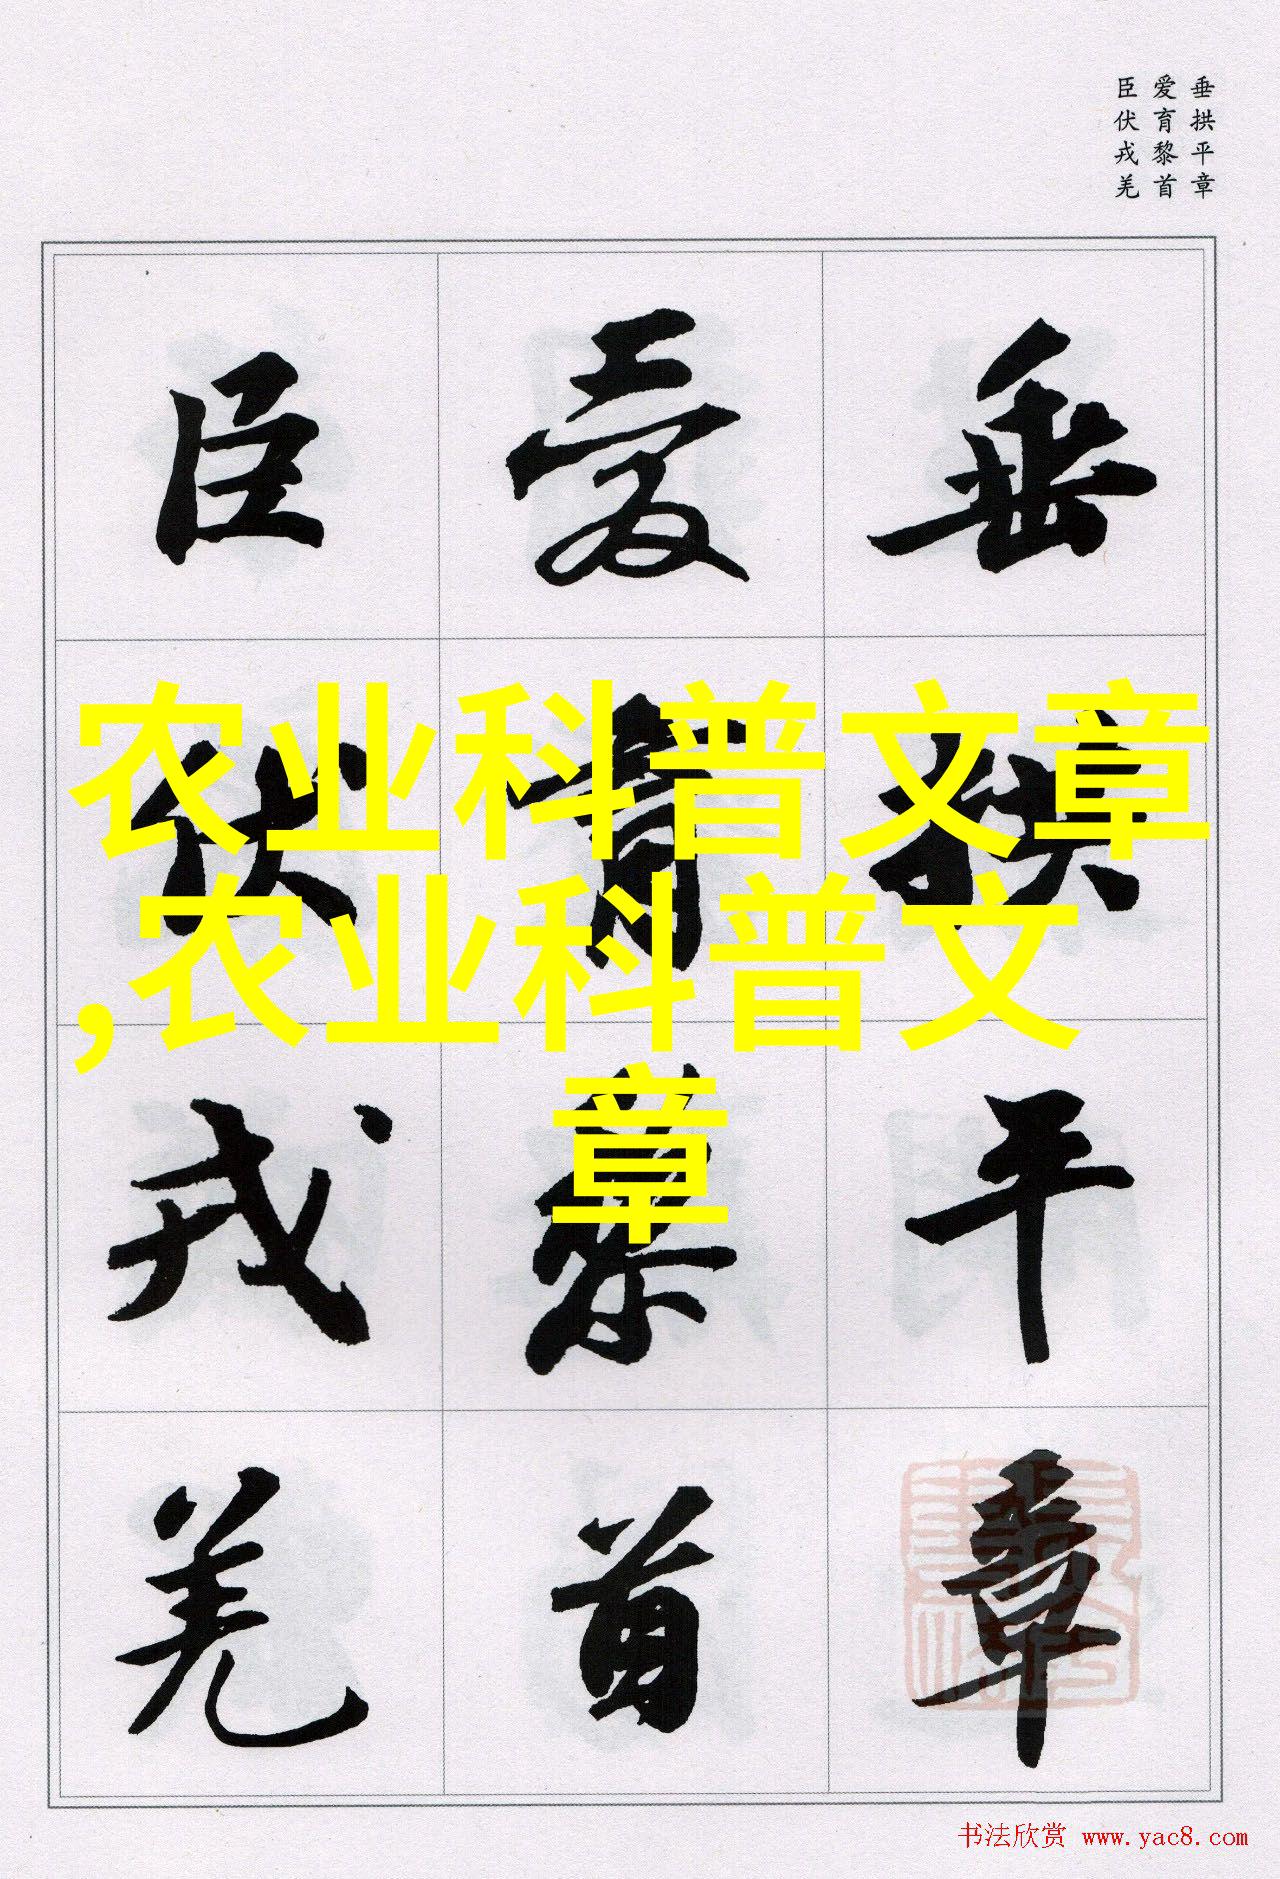 垂拱平章
爱育黎首
臣伏戎羌
垂拱平章
爱育黎首
臣伏戎羌
农业科普文章
,农业科普文
章
书法欣赏 www.yac8.com